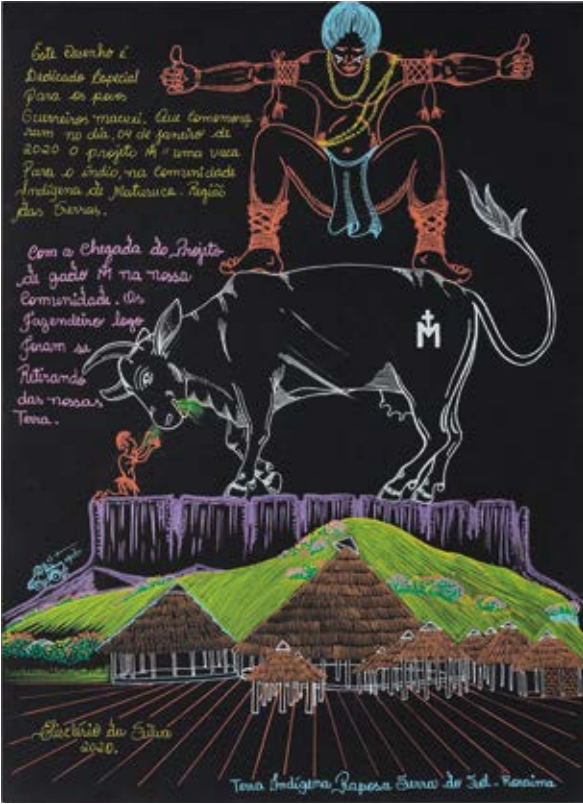 Este Desenho é
Dedicado Especial
Para os povos
Guerreiros macuxi. Que Comemora
ram no dia, 04 de janeiro de
2020 o projeto M "uma vaca
Para o índio, na Comunidade
Indígena de Maturuca. Região
das Serras.
Com a Chegada do Projeto
de gado M na nossa
Comunidade. Os
Fazendeiro logo
foram se
Retirando
das nossas
Terra.
M
da Silva
2020.
Terra Indígena Raposa Serra do Sol - Roraima